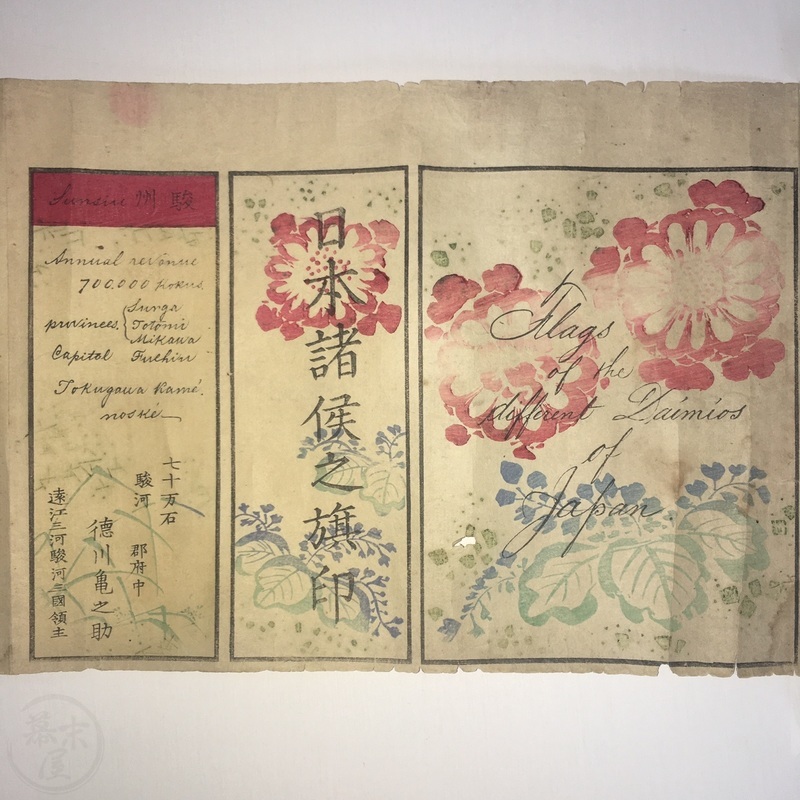 Flags
of the
different Daimios
of
Japan
日本諸侯之旗印
駿州 Sunsiu
Annual revenue
700.000 kokus.
provinces. { Surga
Totomi
Mikawa
Capital Fuchiu
Tokugawa Kamé.
noské
七十万石
駿河 郡府中
德川亀之助
遠江三河駿河三國領主
幕末屋